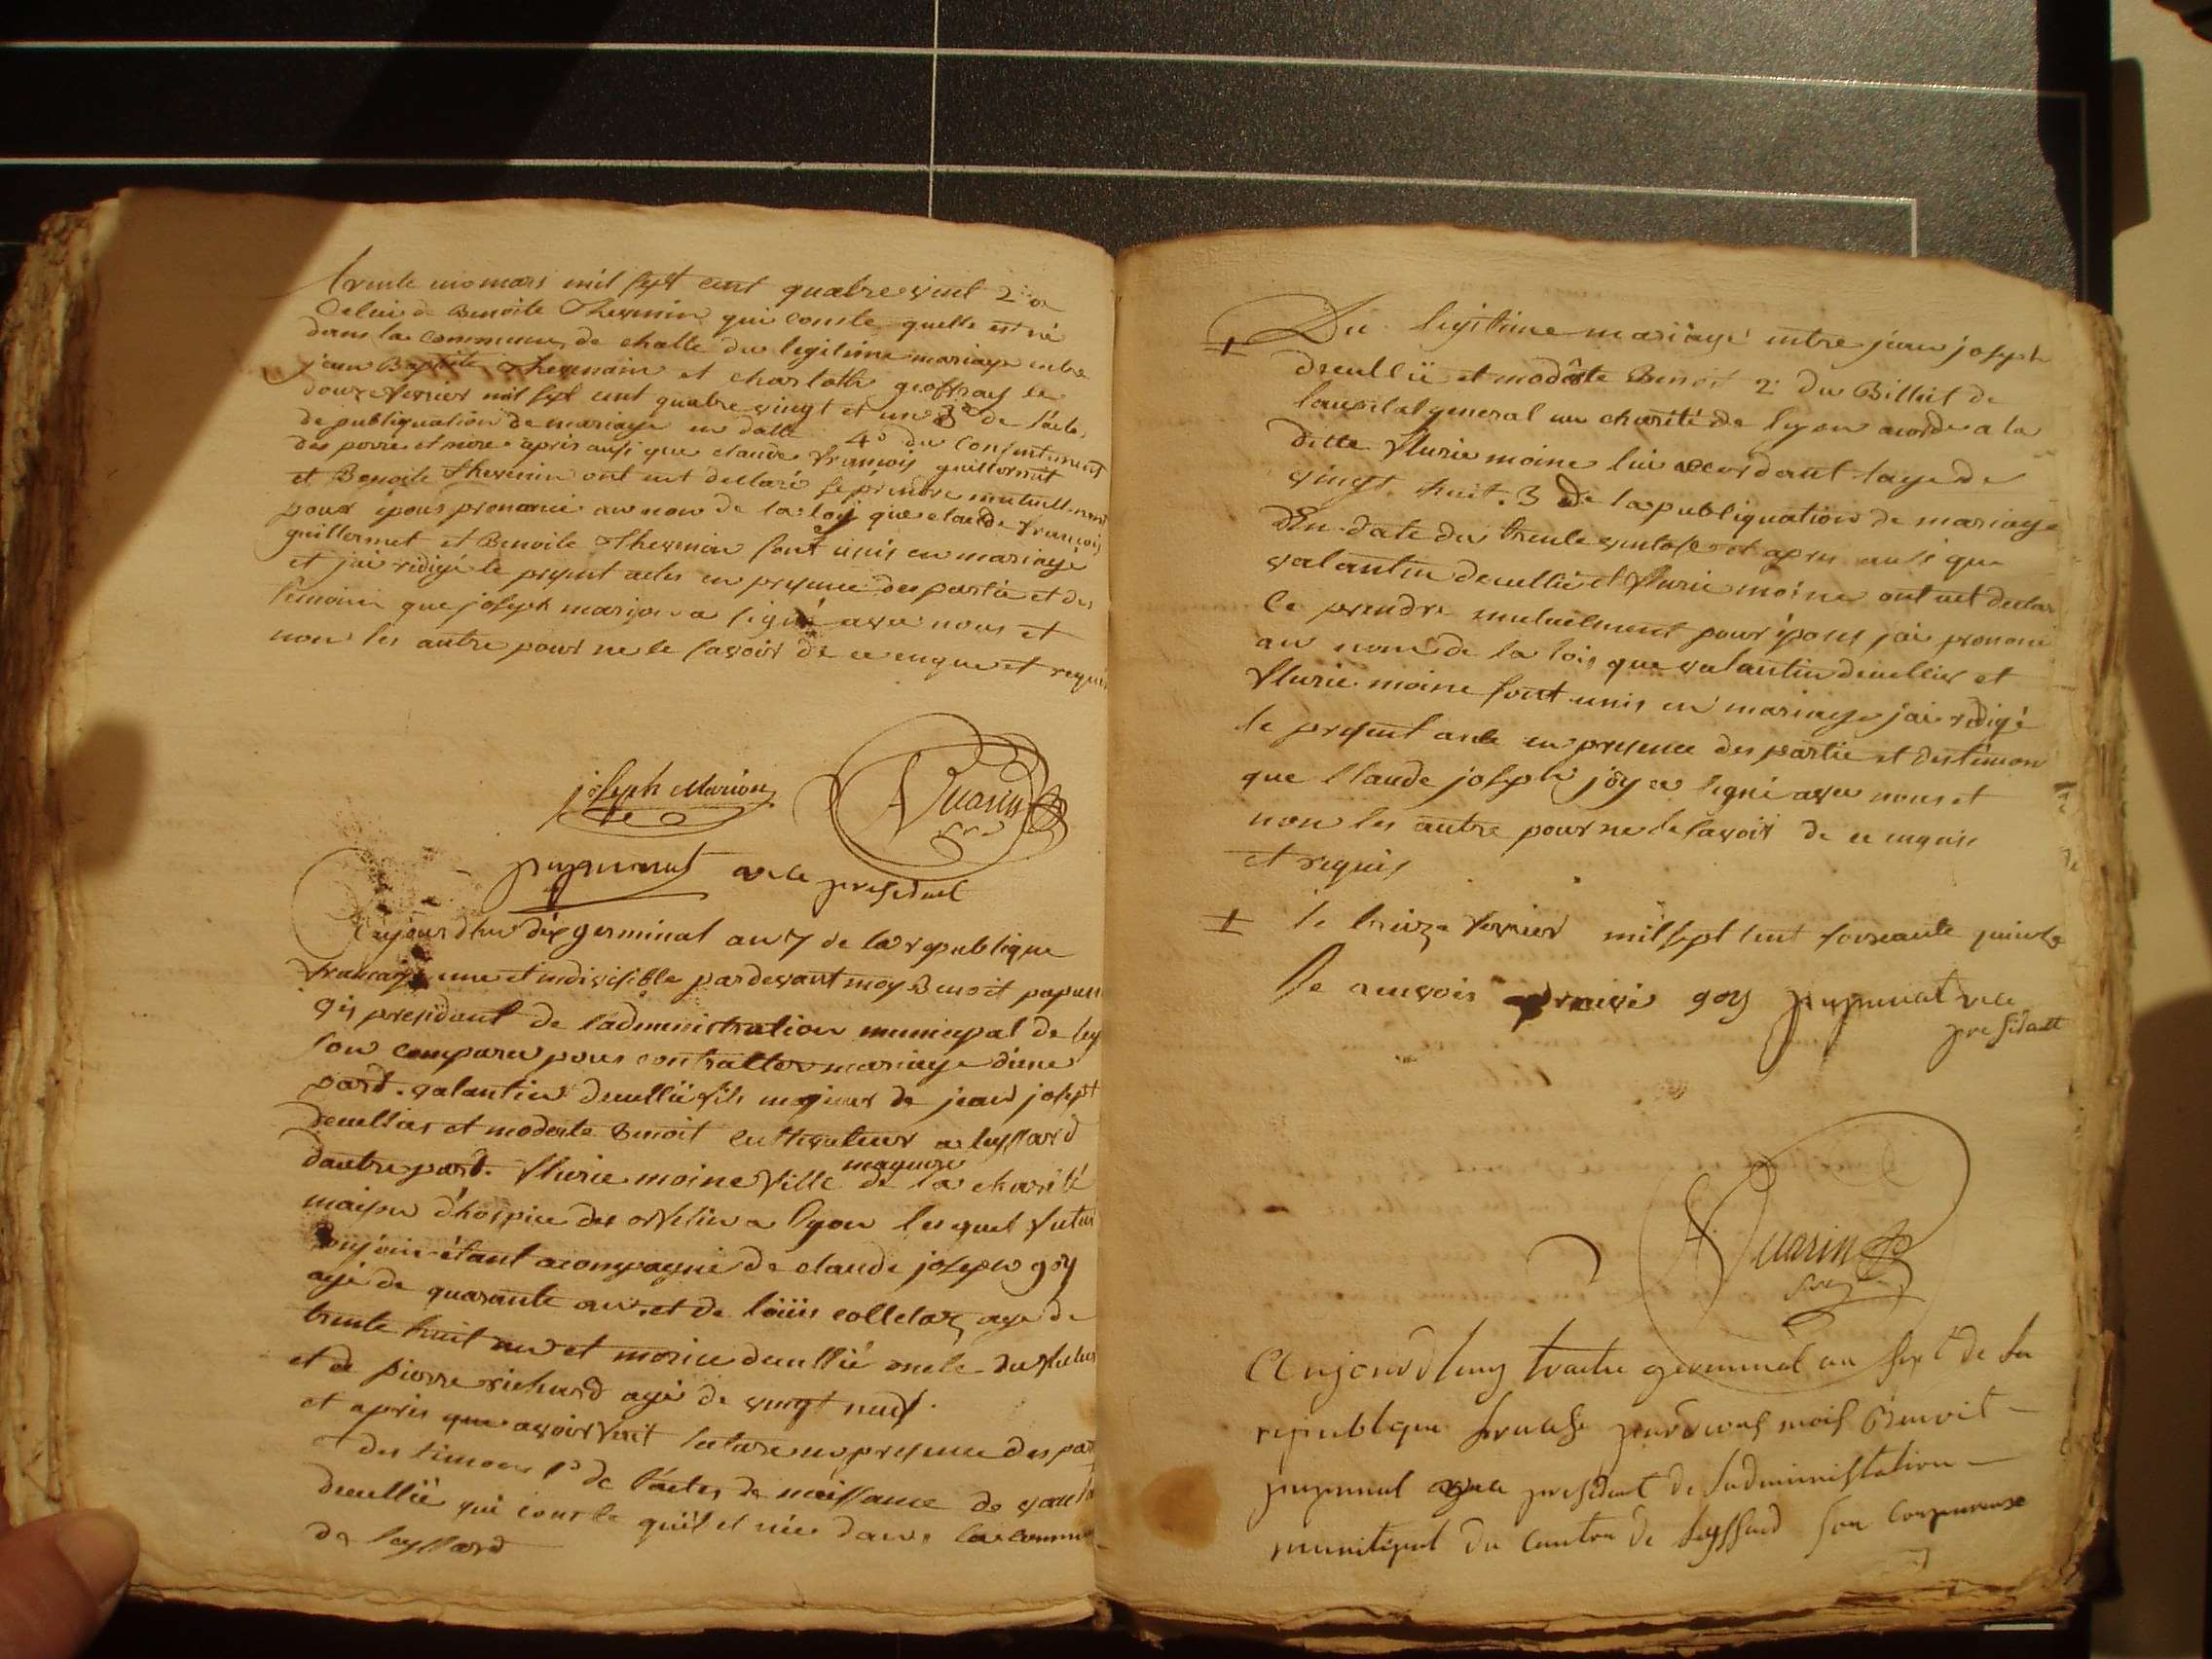 trente un mars mil sept cent quatre vint 2° a
Celui de Benoite Thevenin qui conste quelle est né
dans la commune de challe du legitime mariage entre
jean Baptiste Thevenain et charlotte geoffray le
douze fevrier mil sept cent quatre vingt et un 3° de l'acte
de publiquation de mariage en datte 4° du consentement
des perre et mere apris ausi que claude francois guillermet
et Benoite Thevenin ont eut declaré se prendre mutuellement
pour épous prononcé au nom de la loy que claude francois
guillermet et Benoite Thevenin sont unis en mariage
et jai rédigé le present actes en presence des partie et des
temoins que joseph marion a signé avec nous et
non les autre pour ne le savoir de ce enquie et requis
joseph Marion
A Juarin
papunat vice president
aujourdhui dix germinal an 7 de la republique
francaise une et indivisible pardevant moy Benoit papun
president de l'administration municipal de ley
son comparu pour contratter mariage dune
part. valantin decullié fils majeur de jean joseph
decullier et modeste Benoit cultivateur a leyssard
dautre part. flurie moine fille majeure de la charité
maison d'hospice des orfelin a lyon les quel futur
conjoin étant acompagné de claude joseph goy
agé de quarante ans et de loüis colletaz agé de
trente huit ans et morice decullié oncle du futur
et de pierre richard agé de vingt neuf.
et apris que avoir fait lecture en presence des par
des timoins 1° de l'actes de naissance de vanta
decullié qui conste quil et née dans la commu
de leyssard
Du legitime mariage entre jean joseph
decullié et modeste Benoit 2° du Billiet de
laupital general un charité de lyon acorde a la
ditte flurie moine lui accordant lage de
vingt huit. 3 De la publiquation de mariage
En date du trente ventose et apres ausi que
valantin decullié et flurie moine ont eut declar
ce prendre mutuelment pour époses jai prononcé
au nom de la lois que valantin decullier et
flurie moine sont unis en mariage jai rédigé
le present acte en presence des partie et des temon
que Claude joseph joy a signé avec nous et
non les autre pour ne le savoir de ce enquis
et requis
le treize fevrier mil sept cent soixante quinze
goy papunat vice
presidant
A Juarin
Aujourdhuy trante germinal an sept de la
republique pardevant mois Benoit
papunat vice president de ladministration
municipal du canton de Leyssard son comparuse